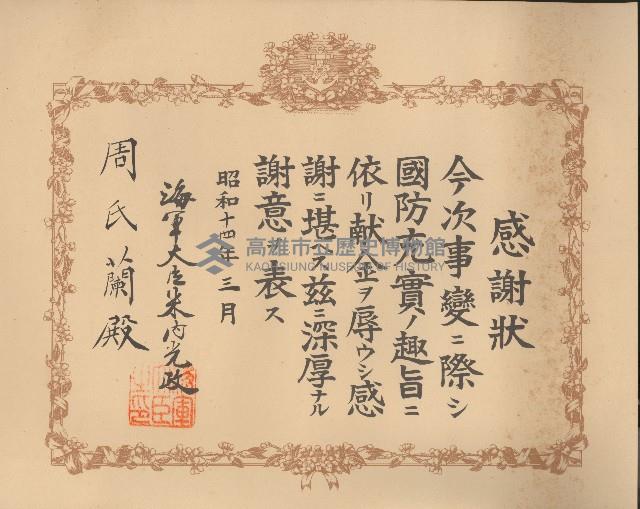 感謝狀
今次事變ニ際シ
國防充實ノ趣旨ニ
依リ献金ヲ辱ウシ感
謝ニ堪ヘズ玆ニ深厚ナル
謝意ヲ表ス
昭和十四年三月
海軍大臣米內光政
周氏蘭殿
海軍大臣之印
高雄市立歷史博物館
KAOHSIUNG MUSEUM OF HISTORY